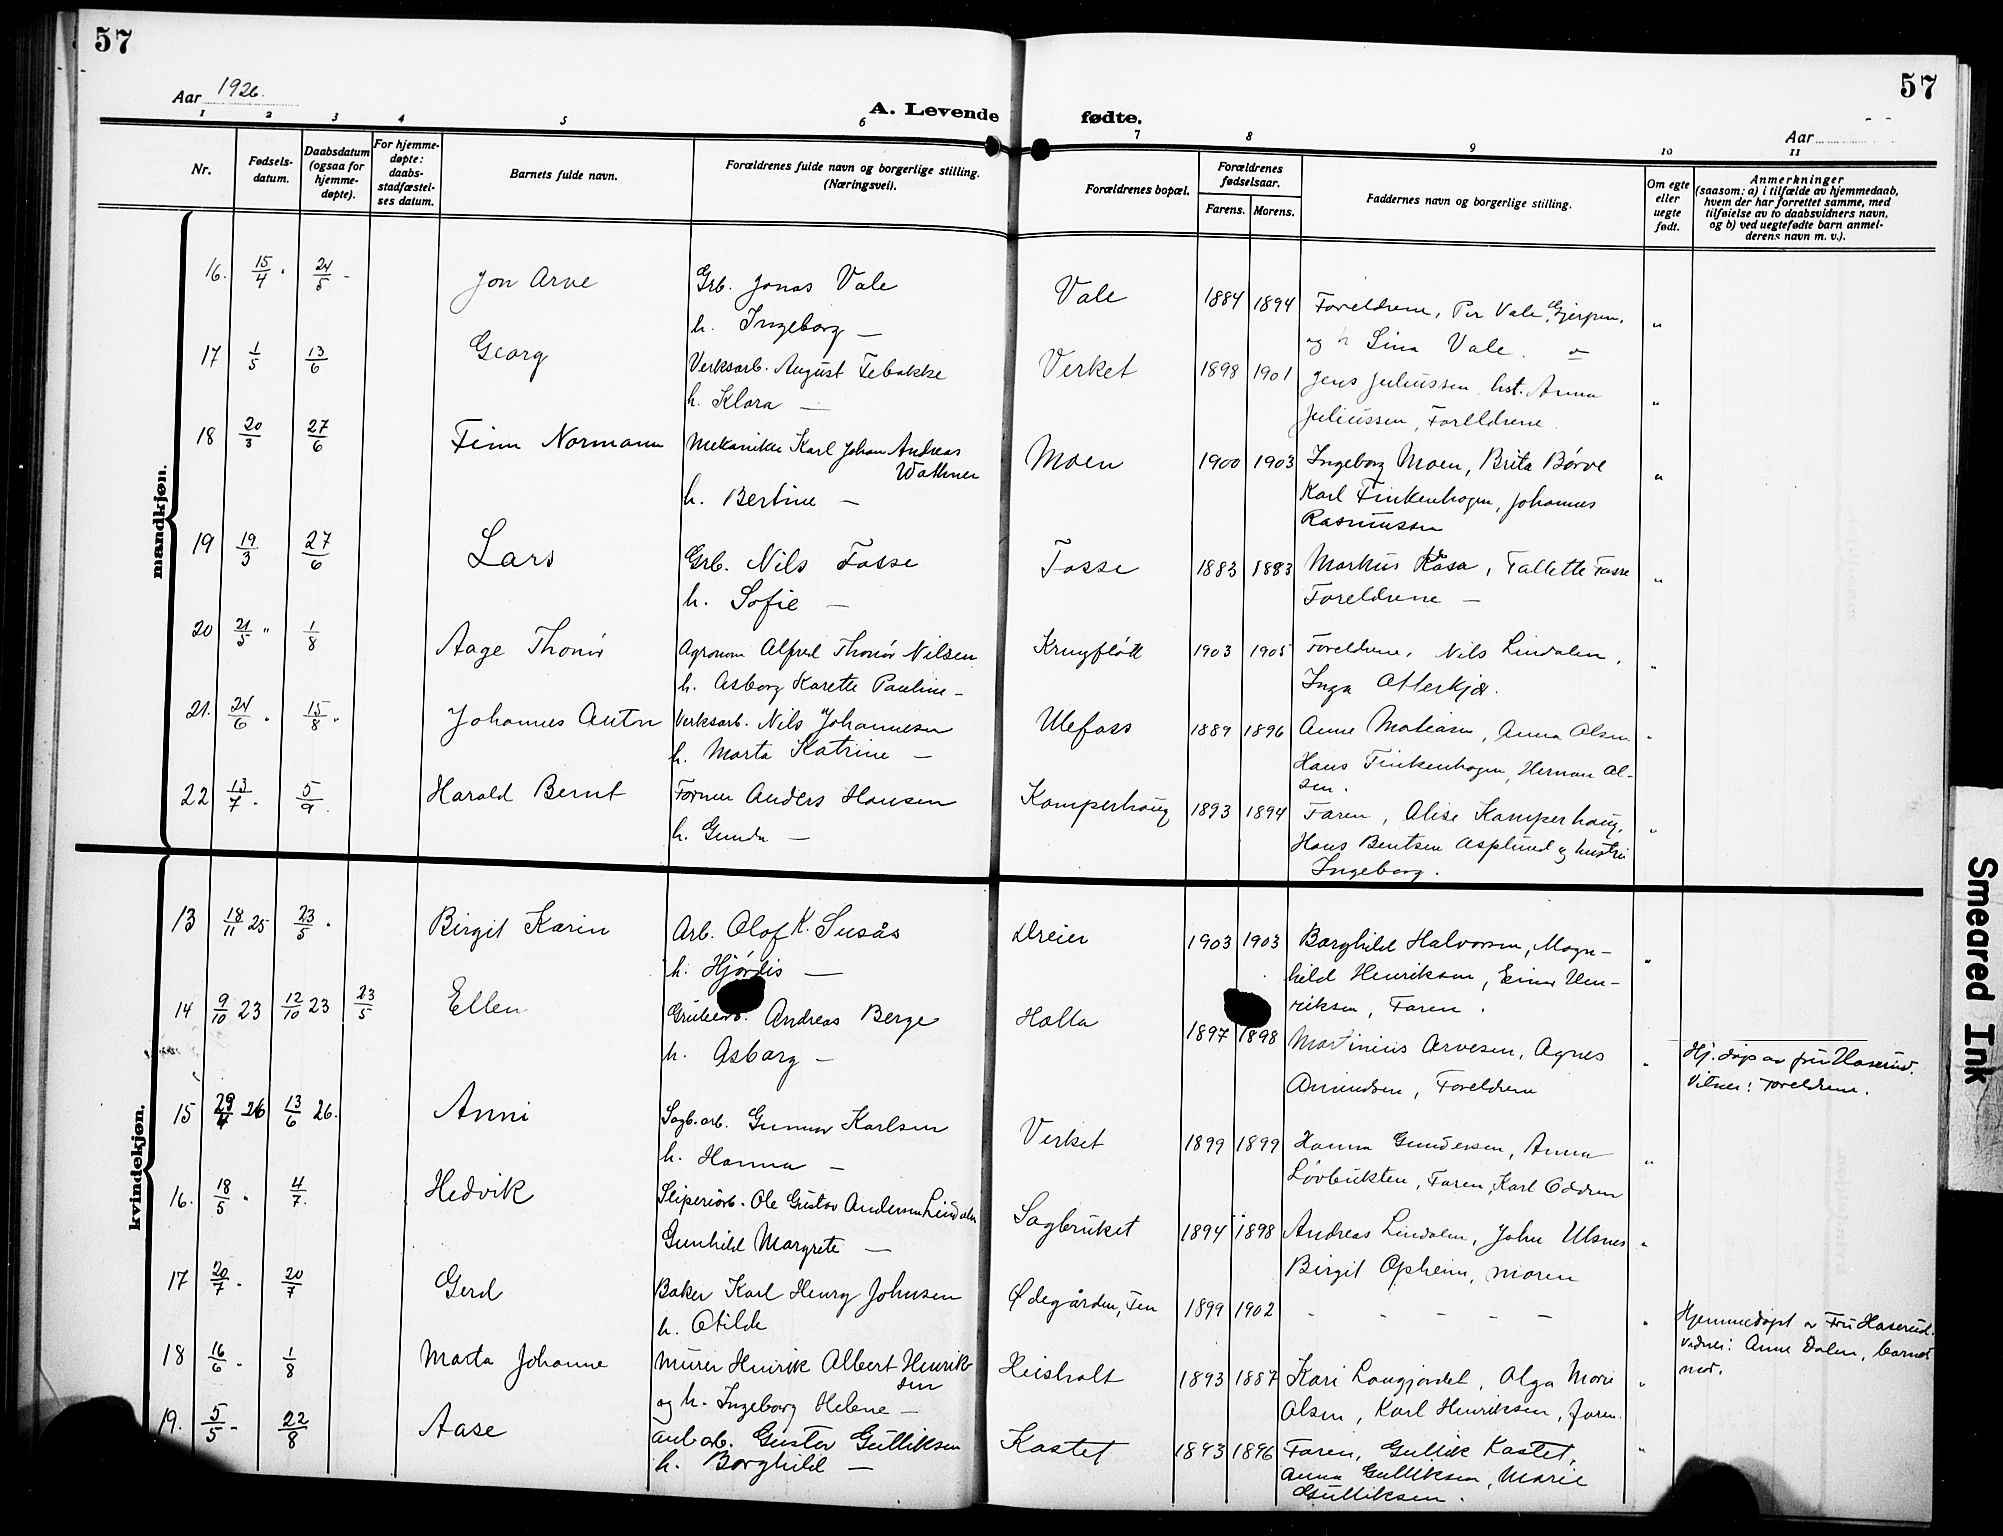 57
57
Aar 1926.
A. Levende fødte.
Aar
1 2 3 4 5 6 7 8 9 10 11
Nr.
Fødsels-
datum.
Daabsdatum
(ogsaa for
hjemme-
døpte).
For hjemme-
døpte:
daabs-
stadfæstel-
ses datum.
Barnets fulde navn.
Forældrenes fulde navn og borgerlige stilling.
(Næringsvei).
Forældrenes bopæl.
Forældrenes
fødselsaar.
Farens. Morens.
Faddernes navn og borgerlige stilling.
Om egte
eller
uegte
født.
Anmerkninger
(saasom: a) i tilfælde av hjemmedaab,
hvem der har forrettet samme, med
tilføielse av to daabsvidners navn,
og b) ved uegtefødte barn anmel-
derens navn m. v.).
mandkjøn.
16. 15/4 " 24/5 - Jon Arve Grb. Jonas Vale Vale 1884 1894 Foreldrene, Per Vale, Gjerpen, "
h. Ingeborg — og Lina Vale.
17 1/5 13/6 Georg Verksarb. August Tebakke Verket 1898 1901 Jens Juliussen, hst. Anna "
h. Klara — Juliussen, Foreldrene.
18 20/3 27/6 Finn Normann Mekaniker Karl Johan Andreas Moen 1900 1903 Ingeborg Moen, Brita Børve "
Wathner Karl Finkenhagen, Johannes
h. Bertine — Rasmussen
19 19/3 27/6 Lars Grb. Nils Fosse Fosse 1883 1883 Markus Kåsa, Tallette Fosse "
h. Sofie — Foreldrene —
20 21/5 " 1/8 Aage Thonør Agronom Alfred Thonør Nilsen 1903 1905 Foreldrene, Nils Lindalen, "
h. Asborg Karette Pauline — Inga Otterkjær.
21. 24/6 " 15/8 " Johannes Anton Verksarb. Nils Johannesen Ulefoss 1889 1896 Anne , Anna Olsen "
h. Marta Katrine — Hans Finkenhagen, Herman Ol-
sen.
22 13/7 - 5/9 Harald Bernt Former Anders Hansen Kamperhaug 1893 1894 Faren, Alise Kamperhaug, "
h. Gunda — Hans Bentsen Asplund og hustru
Ingeborg.
kvindekjøn.
13 18/11 25 23/5 " Birgit Karin Arb. Olof K. Susås Dreier 1903 1903 Borghild Halvorsen, Magn-
h. Hjørdis — hild Henriksen, Einar Hen-
riksen, Faren.
14 9/10 23 12/10 23 23/5 Ellen Grubearb. Andreas Berge Holla 1897 1898 Martinius Arvesen, Agnes " Hj. døp av fru Haserud.
h. Asbørg — Amundsen, Foreldrene Vitner: Foreldrene.
15 29/4 26 13/6 26. Anni Sagb.arb. Gunnar Karlsen Verket 1899 1899 Hanna Gundersen, Anna "
h. Hanna — Løvbukten, Faren, Karl Oddren
16. 18/5 " 4/7. Hedvik Sliperiarb. Ole Gustav Andersen Lindalen Sagbruket 1894 1898 Andreas Lindalen, John Ulsnes "
Gunhild Margrete — Birgit Opheim, moren
17 20/7 - 20/7 Gerd Baker Karl Henry Johnsen Ødegården, Fen 1899 1902 - - - - " Hjemmedøpt av Fru Haserud.
h. Otilde Vidner: Anne Dalen, barnets
mor.
18 16/6 - 1/8 Marta Johanne Murer Henrik Albert Henrik- Heisholt 1893 1887 Kari Langjordet, Olga Marie "
sen
og h. Ingeborg Helene — Olsen, Karl Henriksen, faren.
19. 5/5 - 22/8 Aase arb. Gustav Gulliksen Kastet 1893 1896 Faren, Gullik Kastet, "
h. Borghild — Anna Gulliksen, Marie
Gulliksen.
Smeared Ink